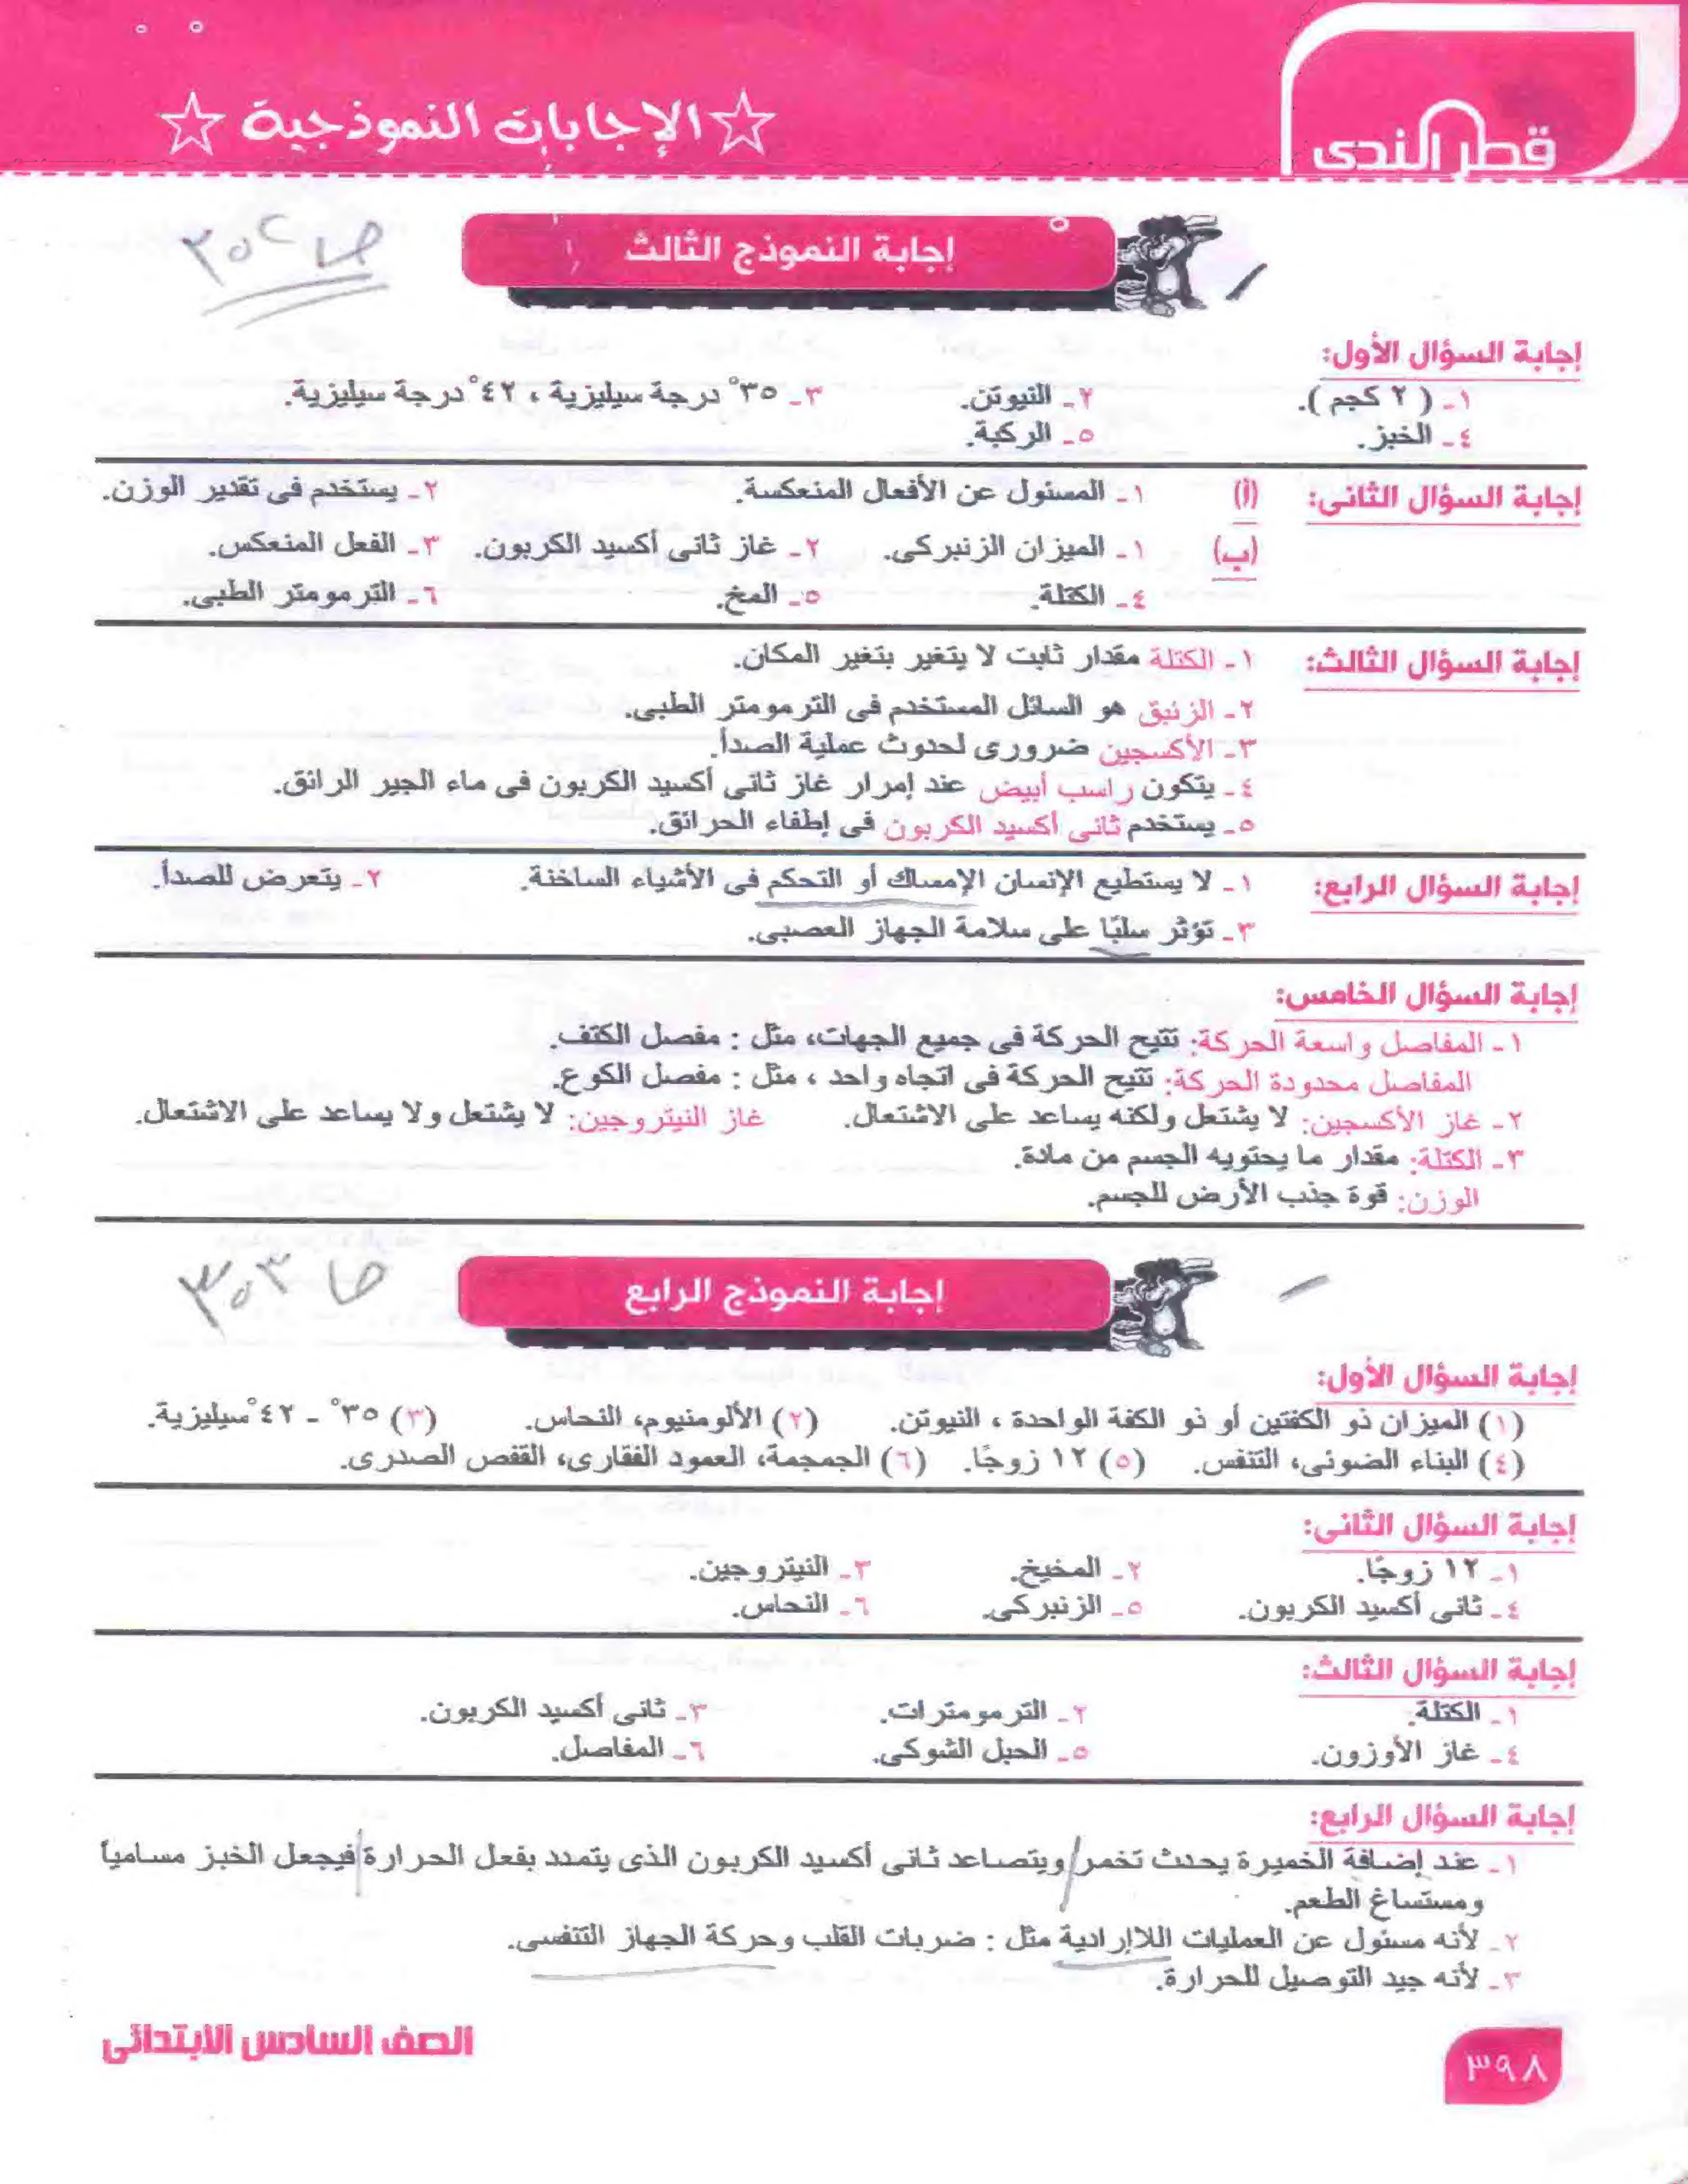 ☆ الإجابات النموذجية ☆
قطر الندى
إجابة النموذج الثالث
ص ٣٠٢
إجابة السؤال الأول:
١ـ ( ٢ كجم ). ٢ـ النيوتن. ٣ـ ٣٥° درجة سيليزية ، ٤٢° درجة سيليزية.
٤ـ الخبز. ٥ـ الركبة.
إجابة السؤال الثانى: (أ) ١ـ المسئول عن الأفعال المنعكسة. ٢ـ يستخدم فى تقدير الوزن.
(ب) ١ـ الميزان الزنبركى. ٢ـ غاز ثانى أكسيد الكربون. ٣ـ الفعل المنعكس.
٤ـ الكتلة. ٥ـ المخ. ٦ـ الترمومتر الطبى.
إجابة السؤال الثالث: ١ـ الكتلة مقدار ثابت لا يتغير بتغير المكان.
٢ـ الزئبق هو السائل المستخدم فى الترمومتر الطبى.
٣ـ الأكسجين ضرورى لحدوث عملية الصدأ.
٤ـ يتكون راسب أبيض عند إمرار غاز ثانى أكسيد الكربون فى ماء الجير الرائق.
٥ـ يستخدم ثانى أكسيد الكربون فى إطفاء الحرائق.
إجابة السؤال الرابع: ١ـ لا يستطيع الإنسان الإمساك أو التحكم فى الأشياء الساخنة. ٢ـ يتعرض للصدأ.
٣ـ تؤثر سلبًا على سلامة الجهاز العصبى.
إجابة السؤال الخامس:
١ـ المفاصل واسعة الحركة: تتيح الحركة فى جميع الجهات، مثل : مفصل الكتف.
المفاصل محدودة الحركة: تتيح الحركة فى اتجاه واحد ، مثل : مفصل الكوع.
٢ـ غاز الأكسجين: لا يشتعل ولكنه يساعد على الاشتعال. غاز النيتروجين: لا يشتعل ولا يساعد على الاشتعال.
٣ـ الكتلة: مقدار ما يحتويه الجسم من مادة.
الوزن: قوة جذب الأرض للجسم.
إجابة النموذج الرابع
ص ٣٠٣
إجابة السؤال الأول:
(١) الميزان ذو الكفتين أو ذو الكفة الواحدة ، النيوتن. (٢) الألومنيوم، النحاس. (٣) ٣٥° ـ ٤٢° سيليزية.
(٤) البناء الضوئى، التنفس. (٥) ١٢ زوجًا. (٦) الجمجمة، العمود الفقارى، القفص الصدرى.
إجابة السؤال الثانى:
١ـ ١٢ زوجًا. ٢ـ المخيخ. ٣ـ النيتروجين.
٤ـ ثانى أكسيد الكربون. ٥ـ الزنبركى. ٦ـ النحاس.
إجابة السؤال الثالث:
١ـ الكتلة. ٢ـ الترمومترات. ٣ـ ثانى أكسيد الكربون.
٤ـ غاز الأوزون. ٥ـ الحبل الشوكى. ٦ـ المفاصل.
إجابة السؤال الرابع:
١ـ عند إضافة الخميرة يحدث تخمر ويتصاعد ثانى أكسيد الكربون الذى يتمدد بفعل الحرارة فيجعل الخبز مسامياً
ومستساغ الطعم.
٢ـ لأنه مسئول عن العمليات اللاإرادية مثل : ضربات القلب وحركة الجهاز التنفسى.
٣ـ لأنه جيد التوصيل للحرارة.
الصف السادس الابتدائى
٣٩٨